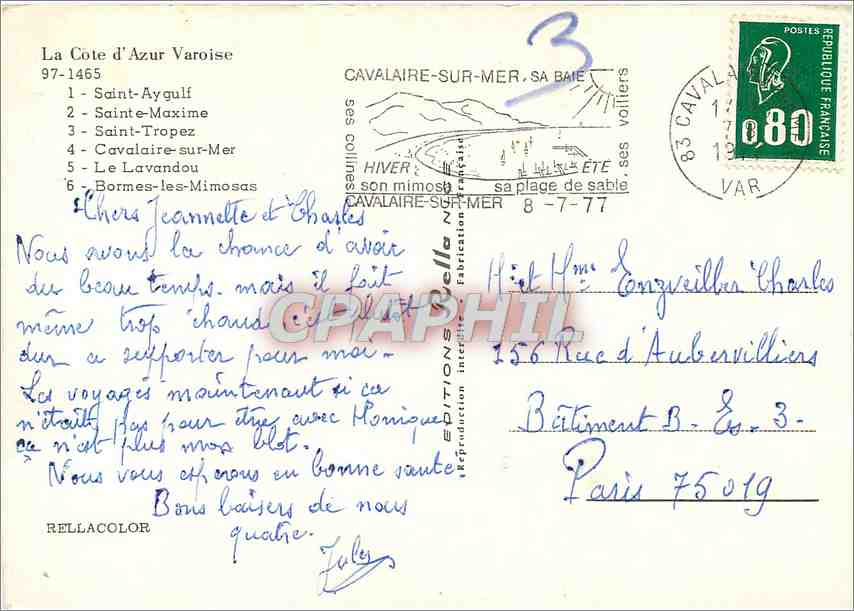 La Côte d'Azur Varoise
97-1465
1 - Saint-Aygulf
2 - Sainte-Maxime
3 - Saint-Tropez
4 - Cavalaire-sur-Mer
5 - Le Lavandou
6 - Bormes-les-Mimosas
3
CAVALAIRE-SUR-MER, SA BAIE
ses collines
ses voiliers
HIVER
ÉTÉ
son mimosa
sa plage de sable
CAVALAIRE-SUR-MER
8 -7-77
83 CAVALA
VAR
POSTES
REPUBLIQUE FRANÇAISE
0,80
Chers Jeannette et Charles
Nous avons la chance d'avoir
du beau temps. mais il fait
même trop chaud c'est
dur a supporter pour moi-
Les voyages maintenant si ca
n'était pas pour être avec Monique
ça n'est plus mon blot.
Nous vous esperons en bonne santé
Bons baisers de nous
quatre.
Jules
RELLACOLOR
EDITIONS Rella NICE
Reproduction interdite - Fabrication Française
CPAPHIL
Mr et Mme Enzveiller Charles
156 Rue d'Aubervilliers
Bâtiment B. Es. 3.
Paris 75019